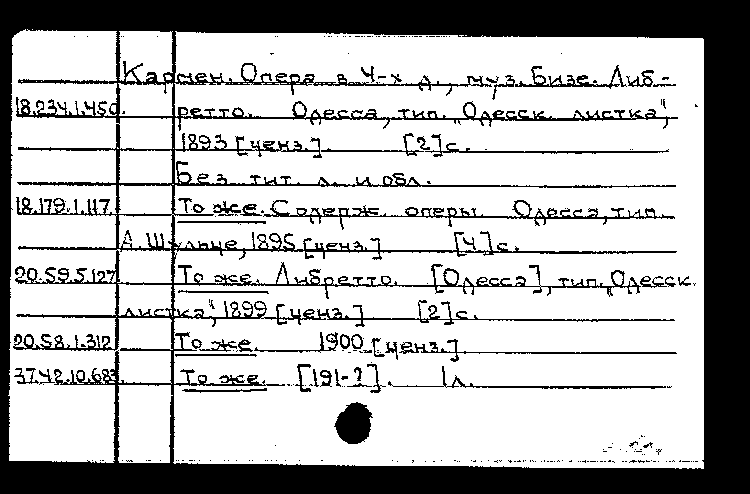 Кармен. Опера в 4-х д., муз. Бизе. Либ-
18.234.1.450. ретто. Одесса, тип. „Одесск. листка",
1893 [ценз.]. [2] с.
Без тит. л. и обл.
18.179.1.117. То же. Содерж. оперы. Одесса, тип.
А. Шульце, 1895 [ценз.] [4] с.
20.59.5.127. То же. Либретто. [Одесса], тип. „Одесск.
листка", 1899 [ценз.] [2] с.
20.58.1.312 То же. 1900 [ценз.].
37.42.10.683. То же. [191-?]. 1 л.